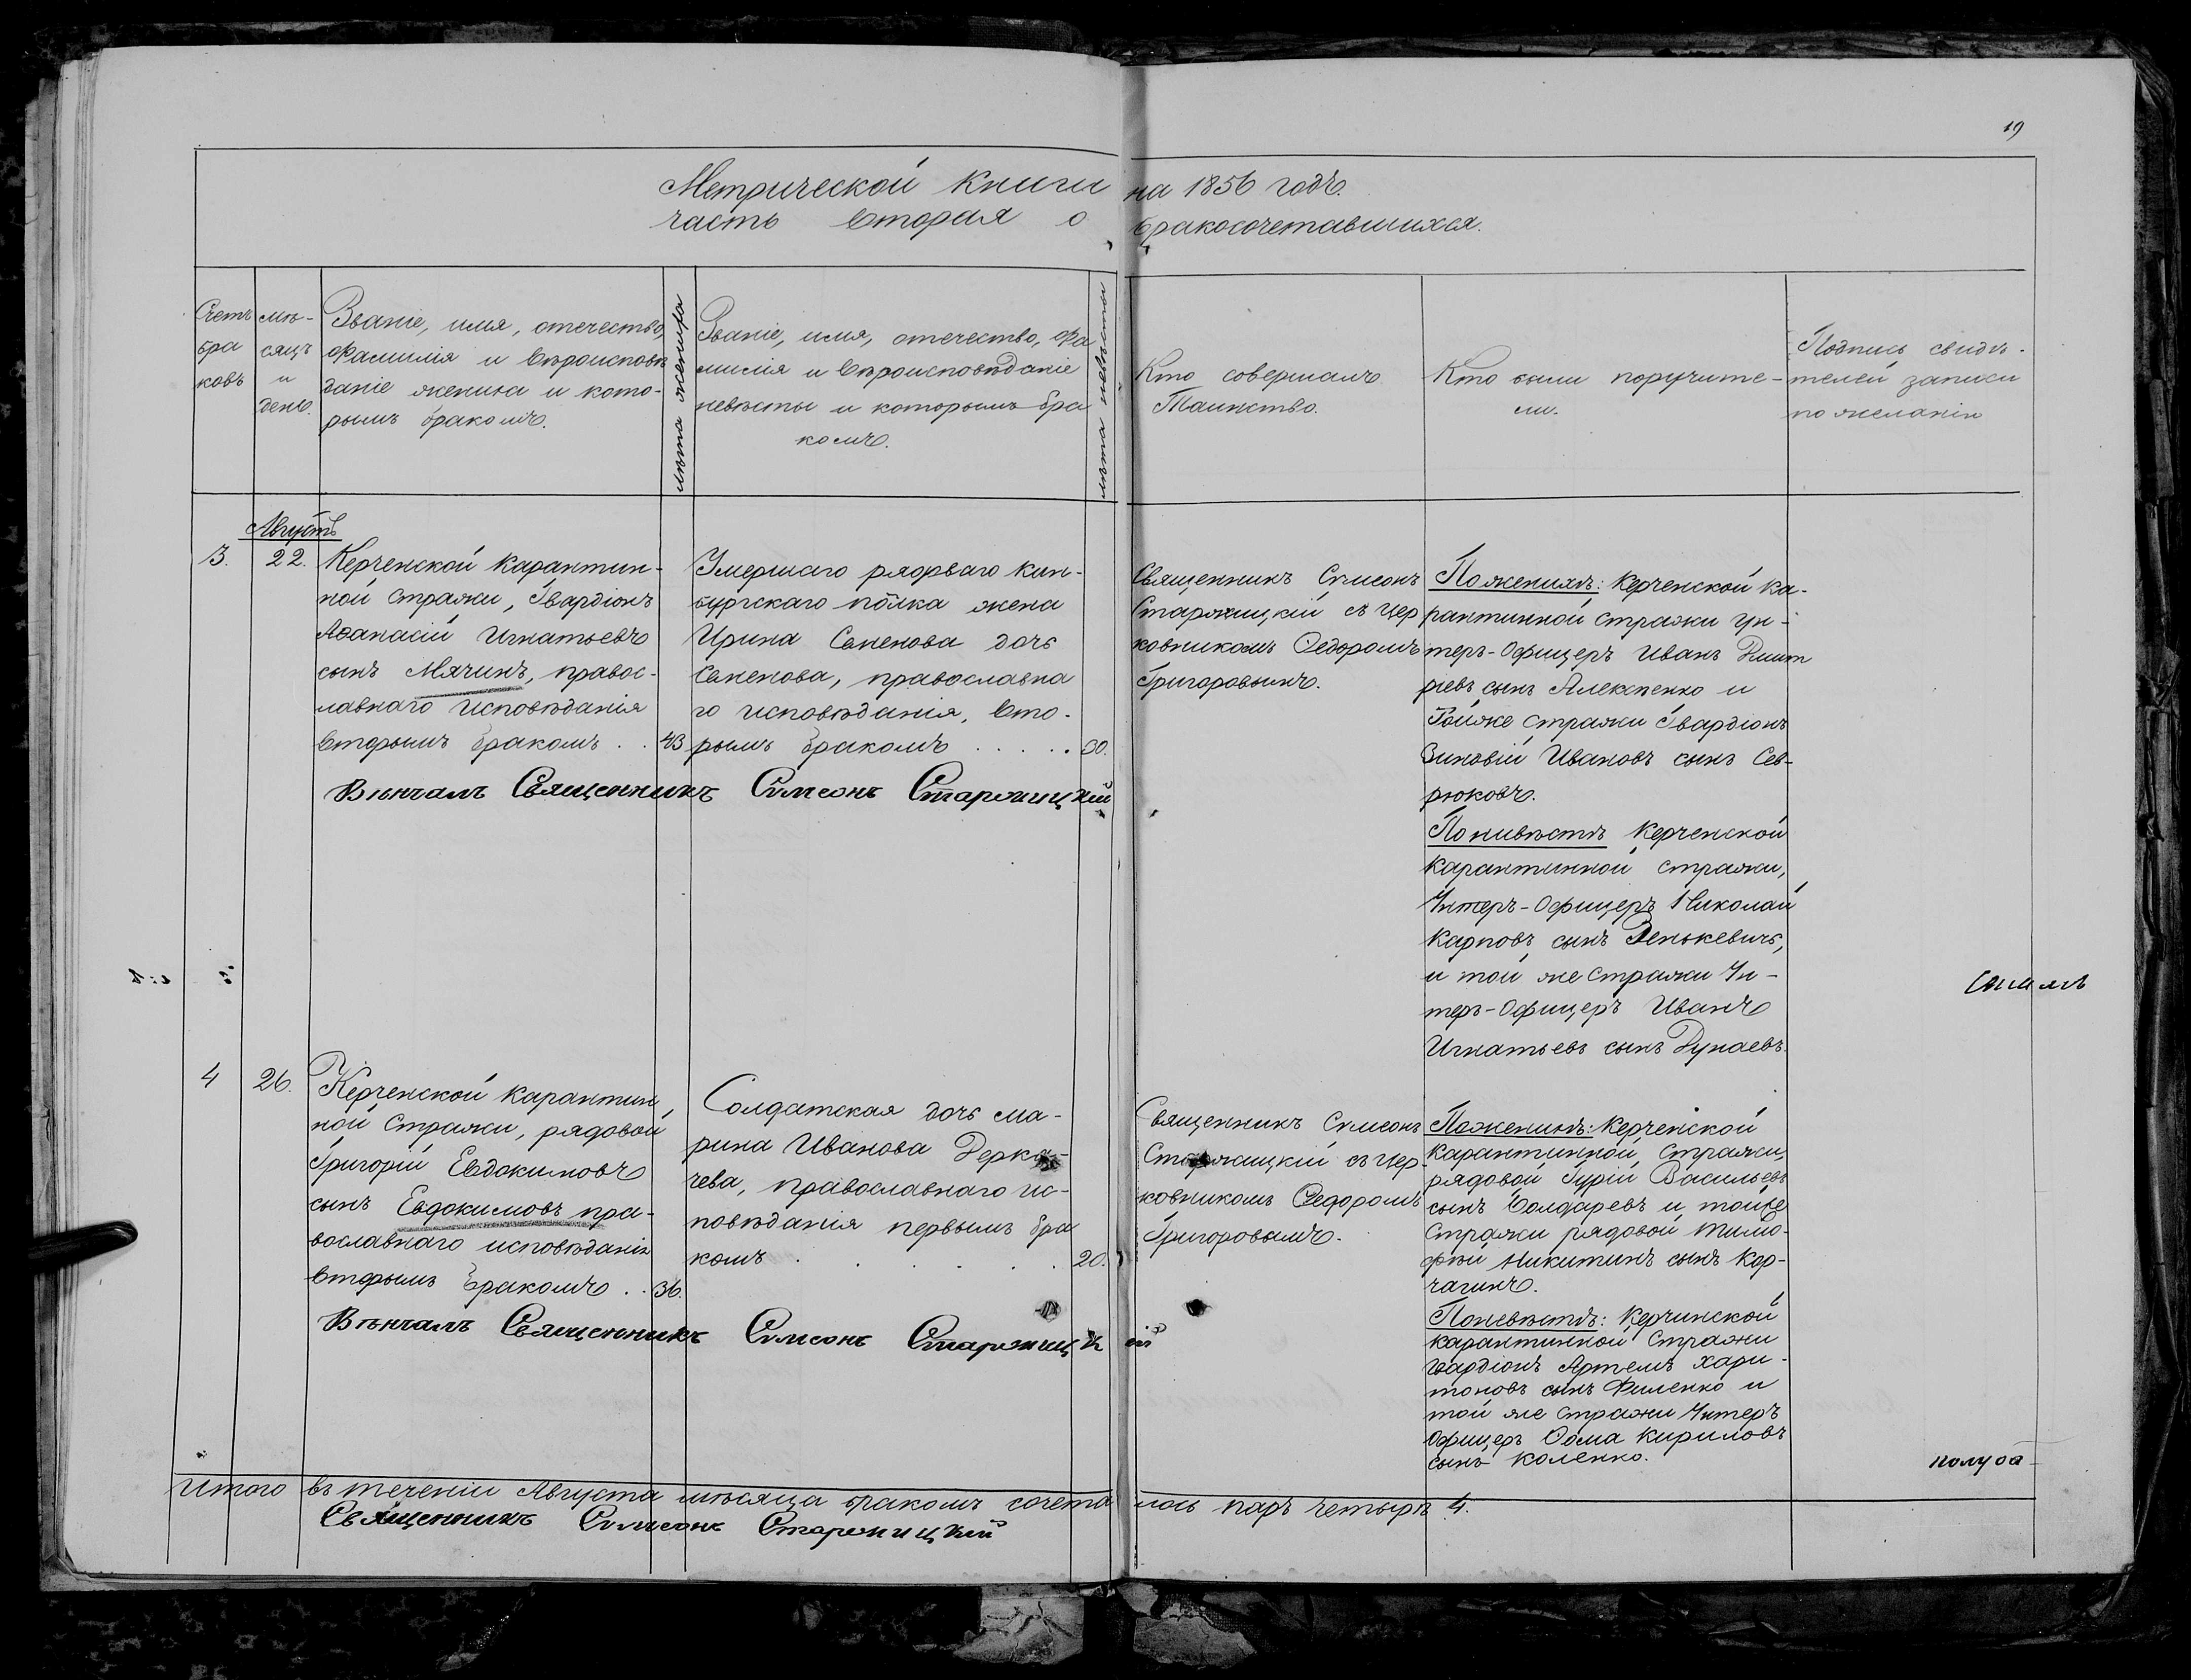 19
Метрической Книги на 1856 годъ.
часть вторая о бракосочетавшихся.
Счетъ браковъ
мѣ-
сяцъ
и
день.
Званіе, имя, отечество,
фамилія и вѣроисповѣ
даніе жениха и кото-
рымъ бракомъ.
лѣта жениха
Званіе, имя, отечество, фа
милія и вѣроисповѣданіе
невѣсты и которымъ бра
комъ.
лѣта невѣсты
Кто совершалъ
Таинство.
Кто были поручите-
ли.
Подпись свидѣ-
телей записи
по желанію
Августъ
3.
22.
Керченской карантин-
ной стражи, Гвардіонъ
Аѳанасій Игнатьевъ
сынъ Мячинъ, правос-
лавнаго исповѣданія
вторымъ бракомъ . .
43
Умершаго рядоваго Кин-
бургскаго полка жена
Ирина Семенова дочь
Семенова, православна
го исповѣданія, вто-
рымъ бракомъ . . . . .
30.
Вѣнчалъ Священникъ Симеонъ Старожицкій
Священникъ Симеонъ
Старожицкій съ цер
ковникомъ Ѳедоромъ
Григоровымъ.
По женихѣ: Керченской ка-
рантинной стражи Ун-
теръ-Офицеръ Иванъ Дмит
ріевъ сынъ Алексѣенко и
Тойже стражи Гвардіонъ
Зиновій Ивановъ сынъ Сев-
рюковъ.
По нивѣстѣ Керченской
карантинной стражи,
Унтеръ-Офицеръ Николай
Карповъ сынъ Зенькевичъ,
и той же стражи Ун-
теръ-Офицеръ Иванъ
Игнатьевъ сынъ Дунаевъ.
4
26.
Керченской карантин
ной стражи, рядовой
Григорій Евдокимовъ
сынъ Евдокимовъ пра-
вославнаго исповѣданія
вторымъ бракомъ . .
36.
Солдатская дочь Ма-
рина Иванова Дерка-
чева, православнаго ис-
повѣданія первымъ бра
комъ . . . . .
20.
Вѣнчалъ Священникъ Симеонъ Старожицкій
Священникъ Симеонъ
Старожицкій съ цер-
ковникомъ Ѳедоромъ
Григоровымъ.
По женихѣ: Керченской
карантинной стражи,
рядовой Гурій Васильевъ
сынъ Болдаревъ и тойже
стражи рядовой Тимо-
фѣй Никитинъ сынъ Кор-
чагинъ.
По невѣстѣ: Керчинской
карантинной стражи
гвардіонъ Артемъ Хари-
тоновъ сынъ Филенко и
той же стражи Унтеръ
Офицеръ Ѳома Кириловъ
сынъ Коленко.
Итого въ теченіи Августа мѣсяца бракомъ сочета лось паръ четыре 4.
Священникъ Симеонъ Старожицкій